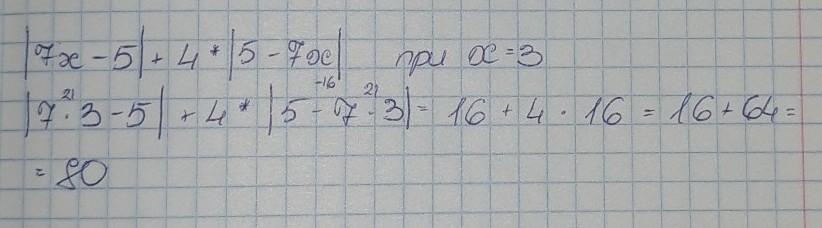 |7x - 5| + 4 * |5 - 7x| при x = 3
|7 · 3 - 5| + 4 * |5 - 7 · 3| = 16 + 4 · 16 = 16 + 64 =
21 -16 21
= 80